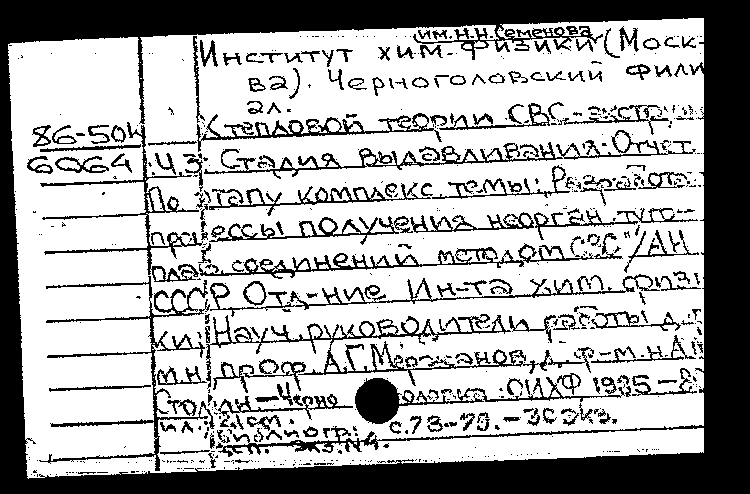 им. Н.Н. Семенова
Институт хим. физики (Моск-
ва). Черноголовский фили
ал.
86-50к К тепловой теории СВС-экстру
6064 Ч.3: Стадия выдавливания: Отчет
По этапу комплекс. темы: Разработа
процессы получения неорган. туго-
плав. соединений методом "СВС"/АН
СССР, Отд-ние Ин-та хим. физи
ки; Науч. руководители работы д.
м.н., проф. А.Г. Мержанов, д. ф-м.н. А.М
Столин - Черно оловка: ОИХФ 1985 - 8
ил.; 21 см.
Библиогр.: с. 73-79. - 30 экз.
экз. №4.